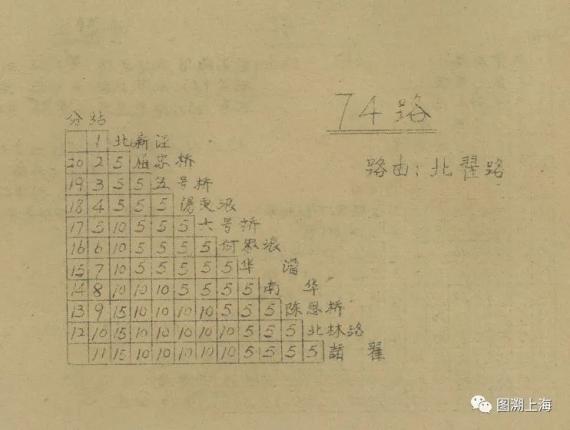 74路
路由：北翟路
分站
1 北新泾
20 2 5 家桥
19 3 5 5 五号桥
18 4 5 5 5 浪
17 5 10 5 5 5 六号桥
16 6 10 5 5 5 5 浪
15 7 10 5 5 5 5 5 华漕
14 8 10 10 10 5 5 5 5 南华
13 9 15 10 10 10 10 5 5 5 陈思桥
12 10 15 10 10 10 10 10 5 5 5 北林路
11 15 10 10 10 10 10 5 5 5 5 諸翟
图溯上海